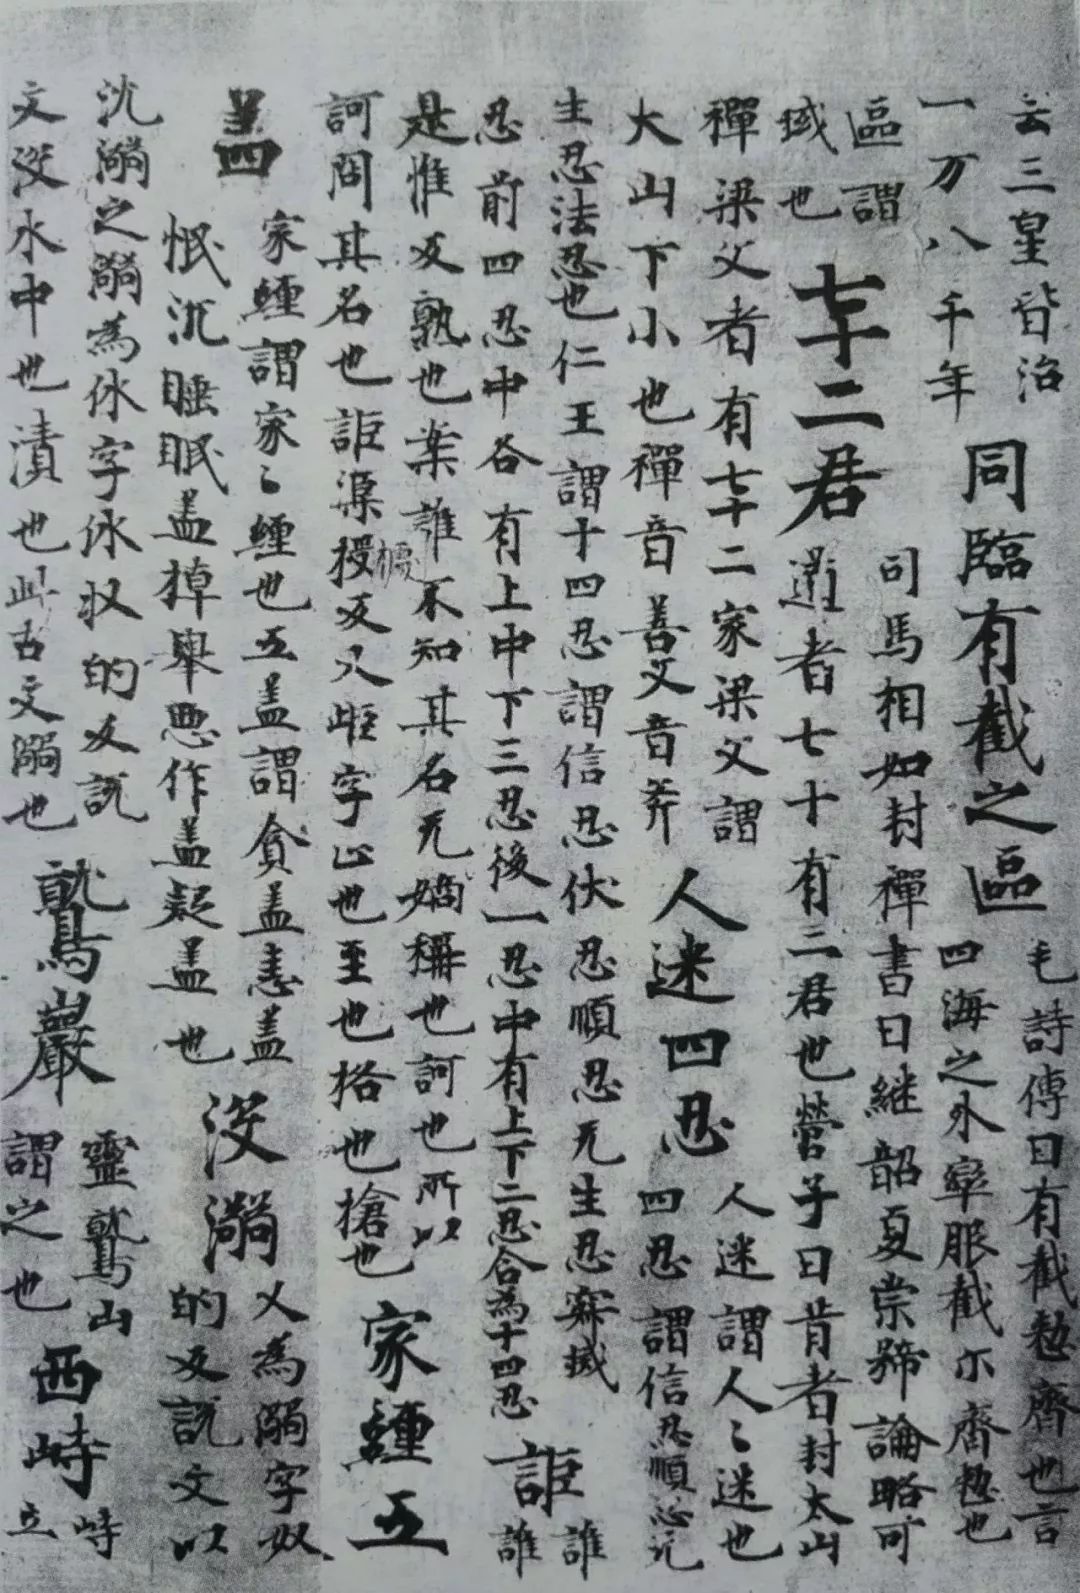 云三皇皆治
一万八千年
同臨有截之區
毛詩傳曰有截整齊也言
四海之外率服截尒齊整也
區謂
域也
七十二君
司馬相如封禪書曰継韶夏崇号謚略可
道者七十有二君也管子曰昔者封太山
禪梁父者有七十二家梁父謂
大山下小也禪音善父音斧
人迷四忍
人迷謂人々迷也
四忍謂信忍順忍无
生忍法忍也仁王謂十四忍謂信忍伏忍順忍无生忍寂滅
忍前四忍中各有上中下三忍後一忍中有上下二忍合為十四忍
詎
誰
誰
是惟反孰也案誰不知其名无嫡稱也訶也所以
訶問其名也詎渠授反又岠字止也至也格也搶也
家纏五
盖四
家纏謂家々纏也五盖謂貪盖恚盖
惛沉睡眠盖掉舉悪作盖疑盖也
没溺
又為溺字奴
的反説文以
沈溺之溺為休字休奴的反説
文没水中也漬也此古文溺也
鷲巖
靈鷲山
謂之也
西峙
峙
立